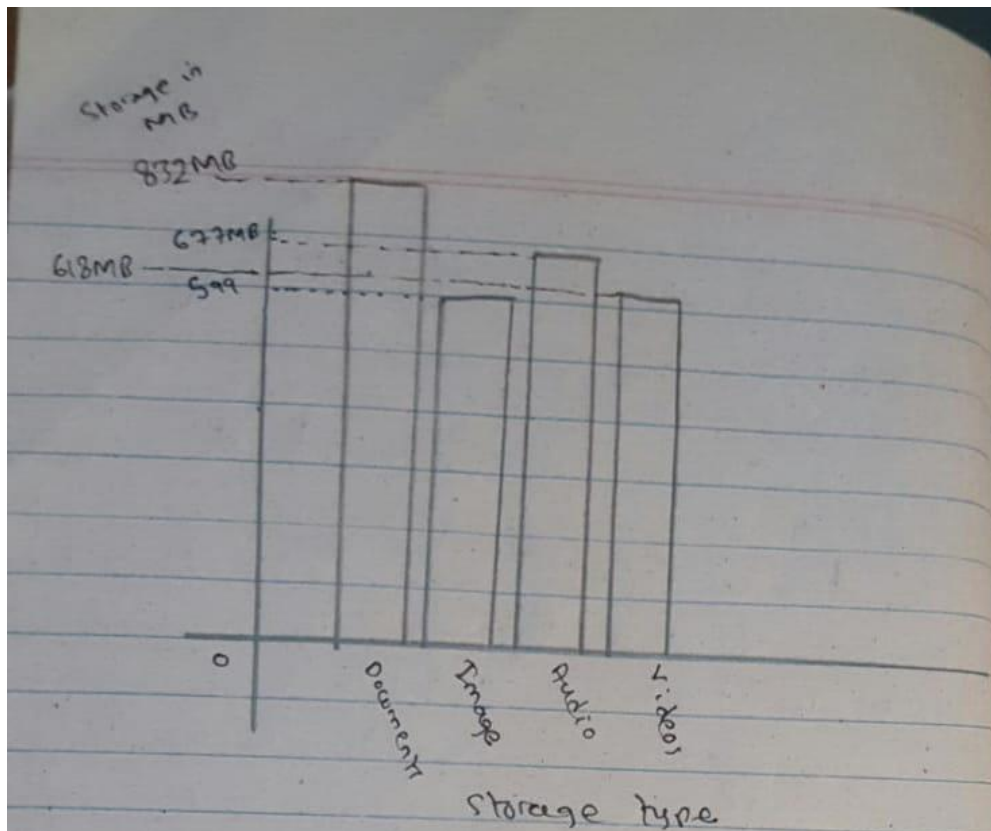 Storage in
MB
832MB
677MB
618MB
599
0
Documents
Image
Audio
Videos
Storage type